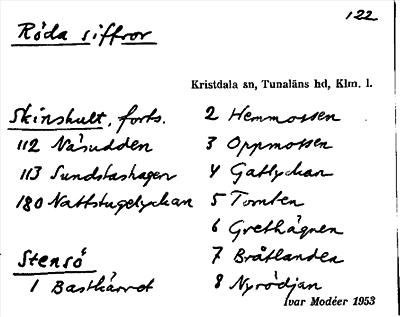 122
Röda siffror
Kristdala sn, Tunaläns hd, Klm. l.
Skinshult, forts.
112 Näsudden
113 Sundstashagen
180 Nattstugelyckan
Stensö
1 Bastkärret
2 Hemmossen
3 Oppmossen
4 Gatlyckan
5 Tomten
6 Grethägnen
7 Bråtlanden
8 Nyrödjan
Ivar Modéer 1953